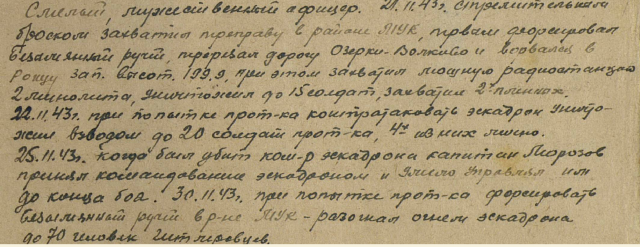 Смелый, мужественный офицер. 21.11.43г. стремительным
броском захватил переправу в районе МУК, первым форсировал
безымянный ручей, перервал дорогу Озерки-Волково и ворвался в
рощу зап. высот. 199,9, при этом захватил мощную радиостанцию
2 миномета, уничтожил до 15 солдат, захватил 2х пленных.
22.11.43г. при попытке прот-ка контратаковать эскадрон уничто-
жил взводом до 20 солдат прот-ка, 4х из них лично.
25.11.43г. когда был убит ком-р эскадрона капитан Морозов
принял командование эскадроном и умело управлял им
до конца боя. 30.11.43г. при попытке прот-ка форсировать
безымянный ручей в р-не МУК - разогнал огнем эскадрона
до 70 человек гитлеровцев.